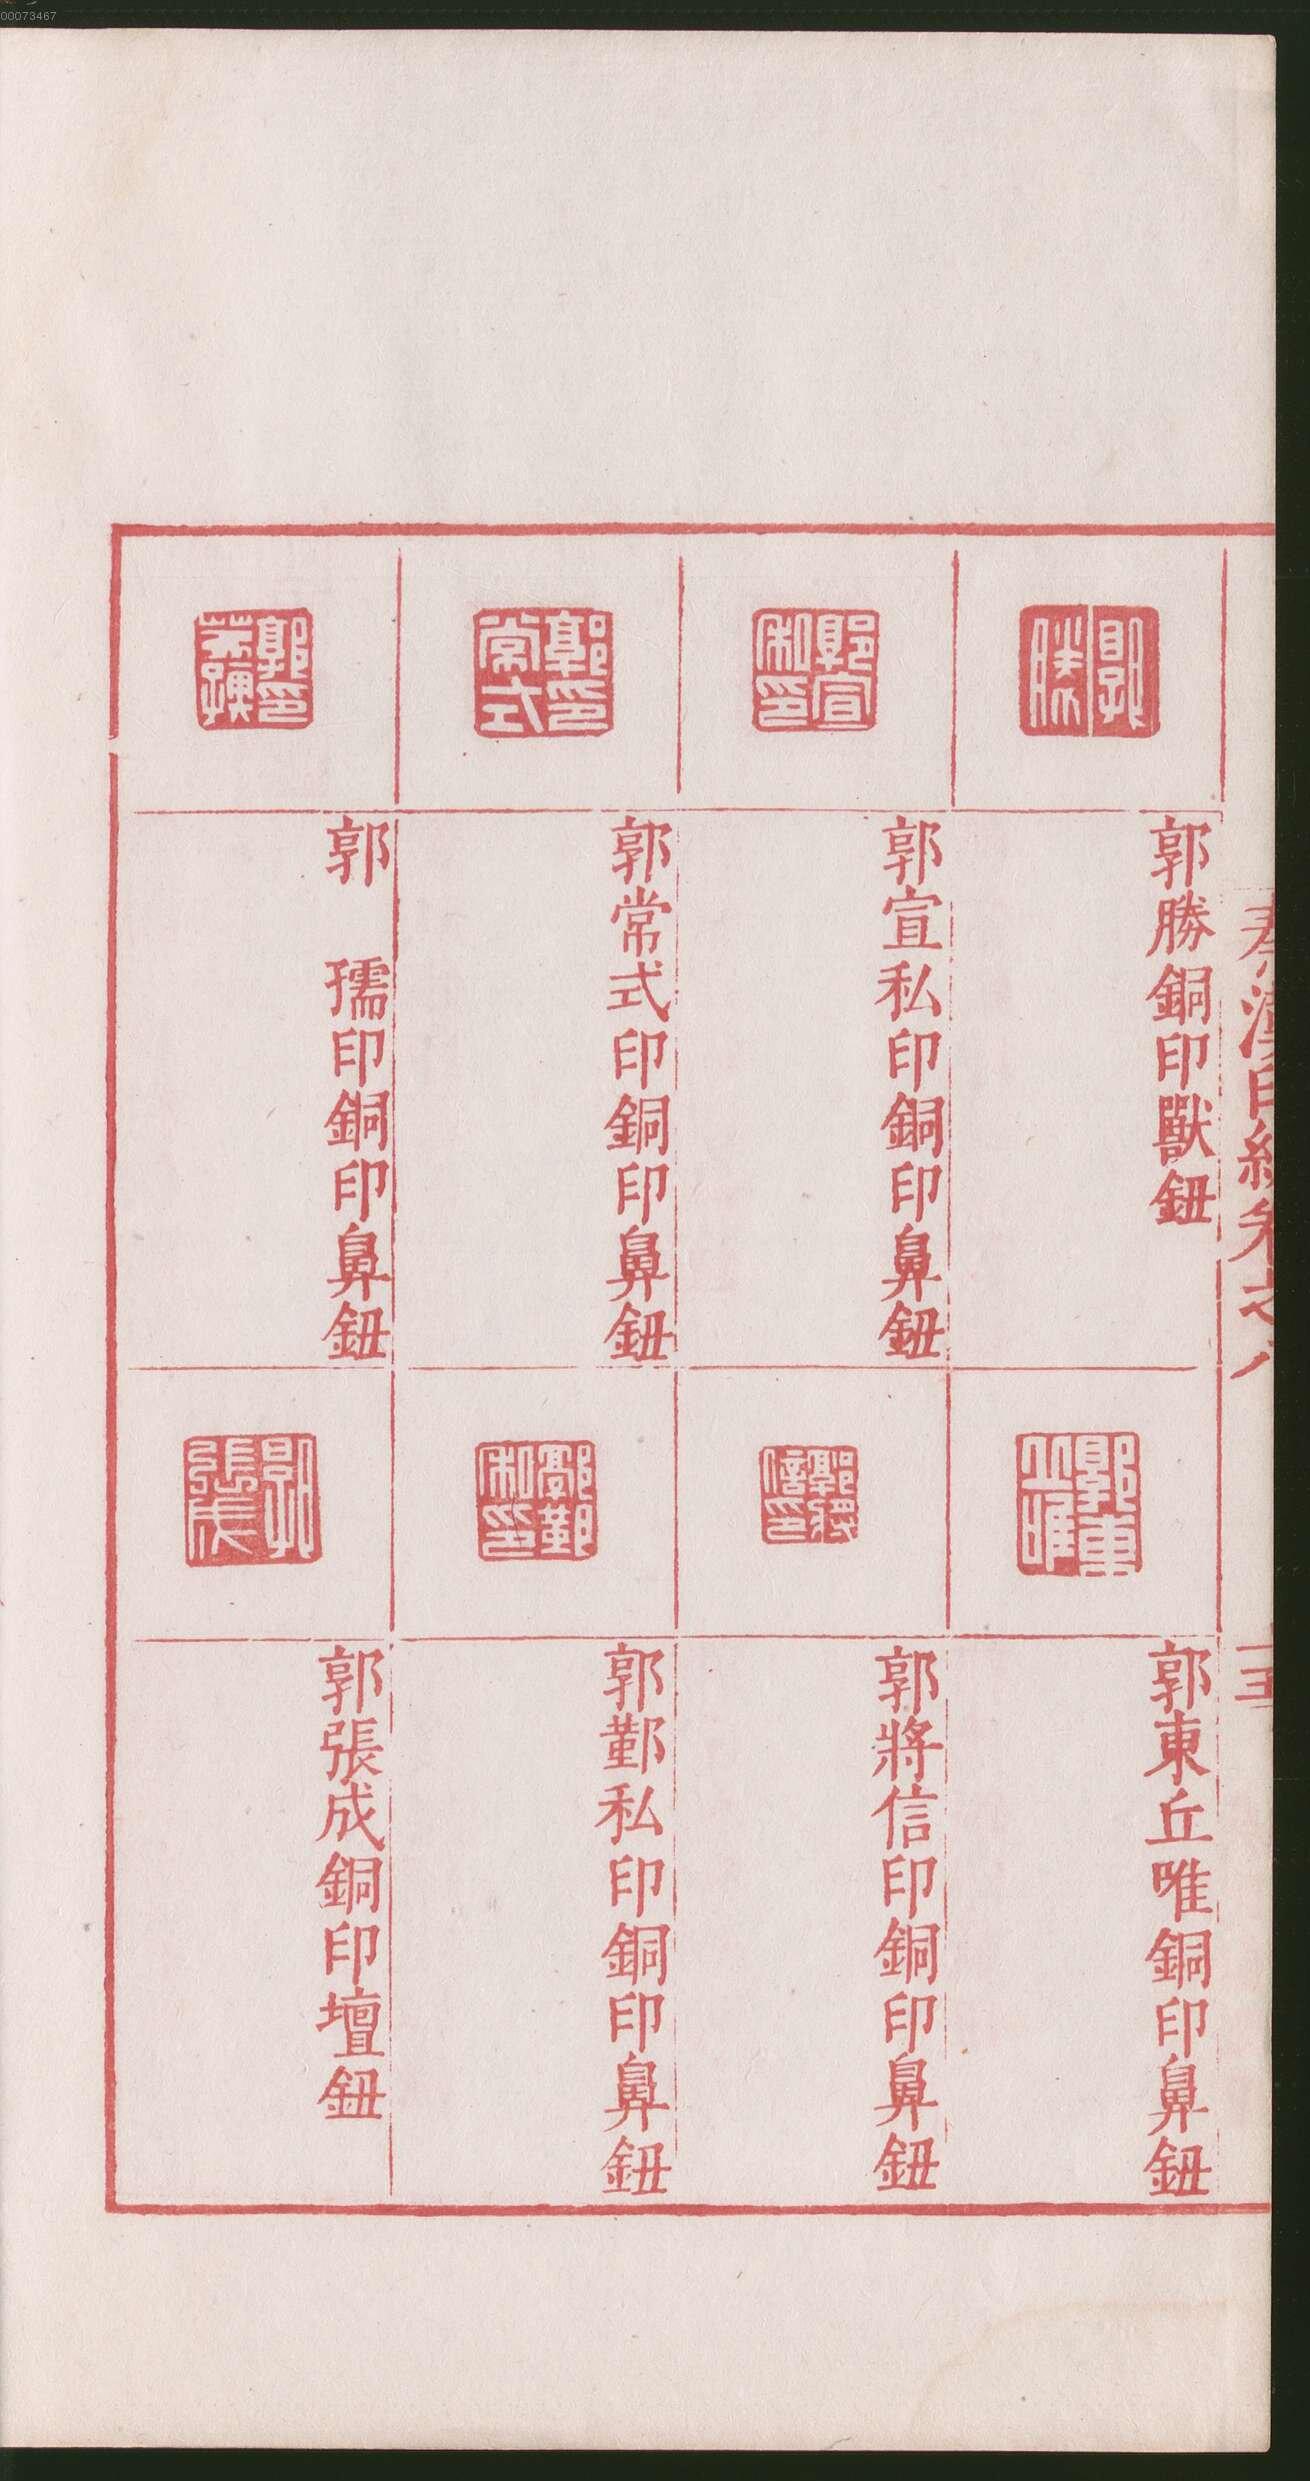 00073467
郭勝銅印獸鈕
郭宣私印銅印鼻鈕
郭常式印銅印鼻鈕
郭 孺印銅印鼻鈕
郭東丘唯銅印鼻鈕
郭將信印銅印鼻鈕
郭鄞私印銅印鼻鈕
郭張成銅印壇鈕
郭勝
郭宣私印
郭印常式
郭東丘唯
郭將信印
郭鄞私印
郭張成